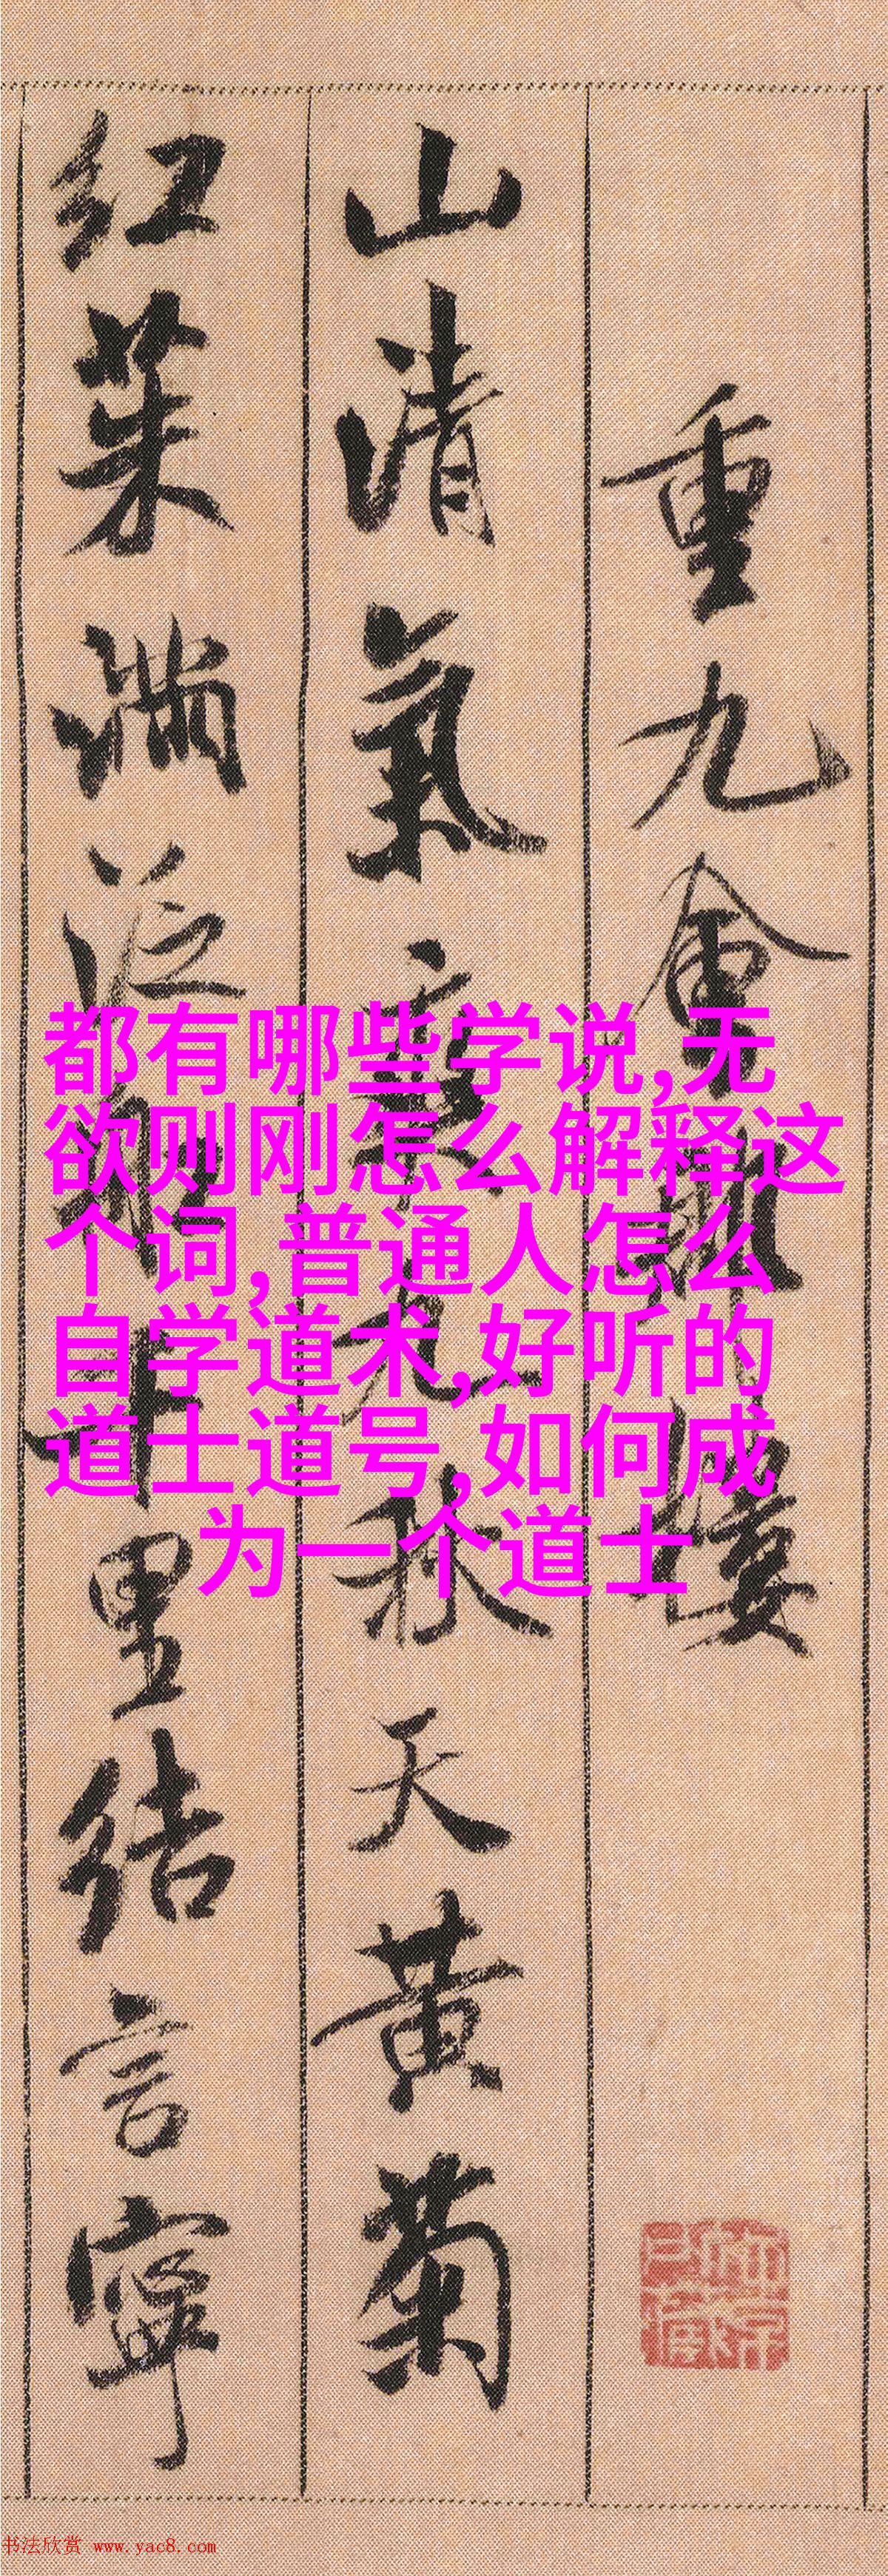 重九會郡樓
山清氣爽九秋天黃菊
紅茱滿泛船千里結言寧
都有哪些学说,无
欲则刚怎么解释这
个词,普通人怎么
自学道术,好听的
道士道号,如何成
为一个道士
书法欣赏 www.yac8.com